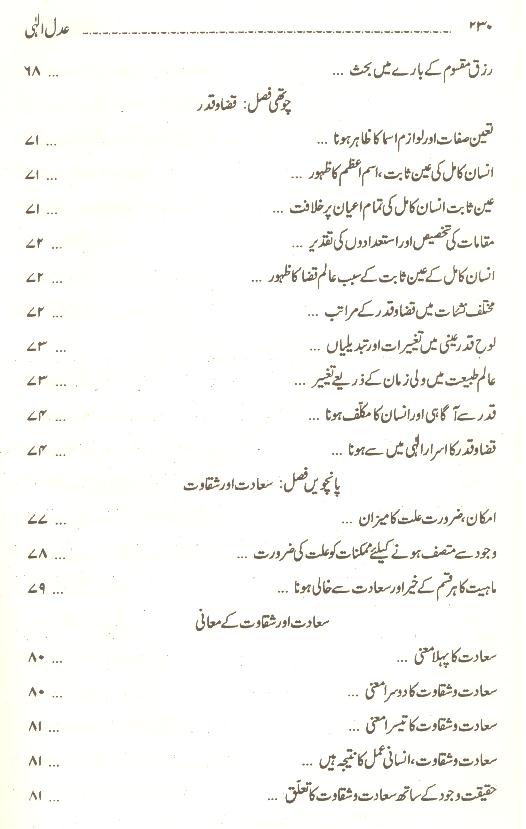 ۲۳۰ عدل الٰہی
رزق مقسوم کے بارے میں بحث ... ۶۸
چوتھی فصل: قضا و قدر
تعین صفات اور لوازم اسما کا ظاہر ہونا ... ۷۱
انسان کامل کی عین ثابت، اسم اعظم کا ظہور ... ۷۱
عین ثابت انسان کامل کی تمام اعیان پر خلافت ... ۷۱
مقامات کی تخصیص اور استعدادوں کی تقدیر ... ۷۲
انسان کامل کے عین ثابت کے سبب عالم قضا کا ظہور ... ۷۲
مختلف نشئات میں قضا و قدر کے مراتب ... ۷۲
لوح قدر عینی میں تغییرات اور تبدیلیاں ... ۷۳
عالم طبیعت میں ولی زمان کے ذریعے تغییر ... ۷۳
قدر سے آگاہی اور انسان کا مکلّف ہونا ... ۷۴
قضا و قدر کا اسرار الٰہی میں سے ہونا ... ۷۴
پانچویں فصل: سعادت اور شقاوت
امکان، ضرورت علت کا میزان ... ۷۷
وجود سے متصف ہونے کیلئے ممکنات کو علت کی ضرورت ... ۷۸
ماہیت کا ہر قسم کے خیر اور سعادت سے خالی ہونا ... ۷۹
سعادت اور شقاوت کے معانی
سعادت کا پہلا معنی ... ۸۰
سعادت و شقاوت کا دوسرا معنی ... ۸۰
سعادت و شقاوت کا تیسرا معنی ... ۸۱
سعادت و شقاوت، انسانی عمل کا نتیجہ ہیں ... ۸۱
حقیقت وجود کے ساتھ سعادت و شقاوت کا تعلّق ... ۸۱